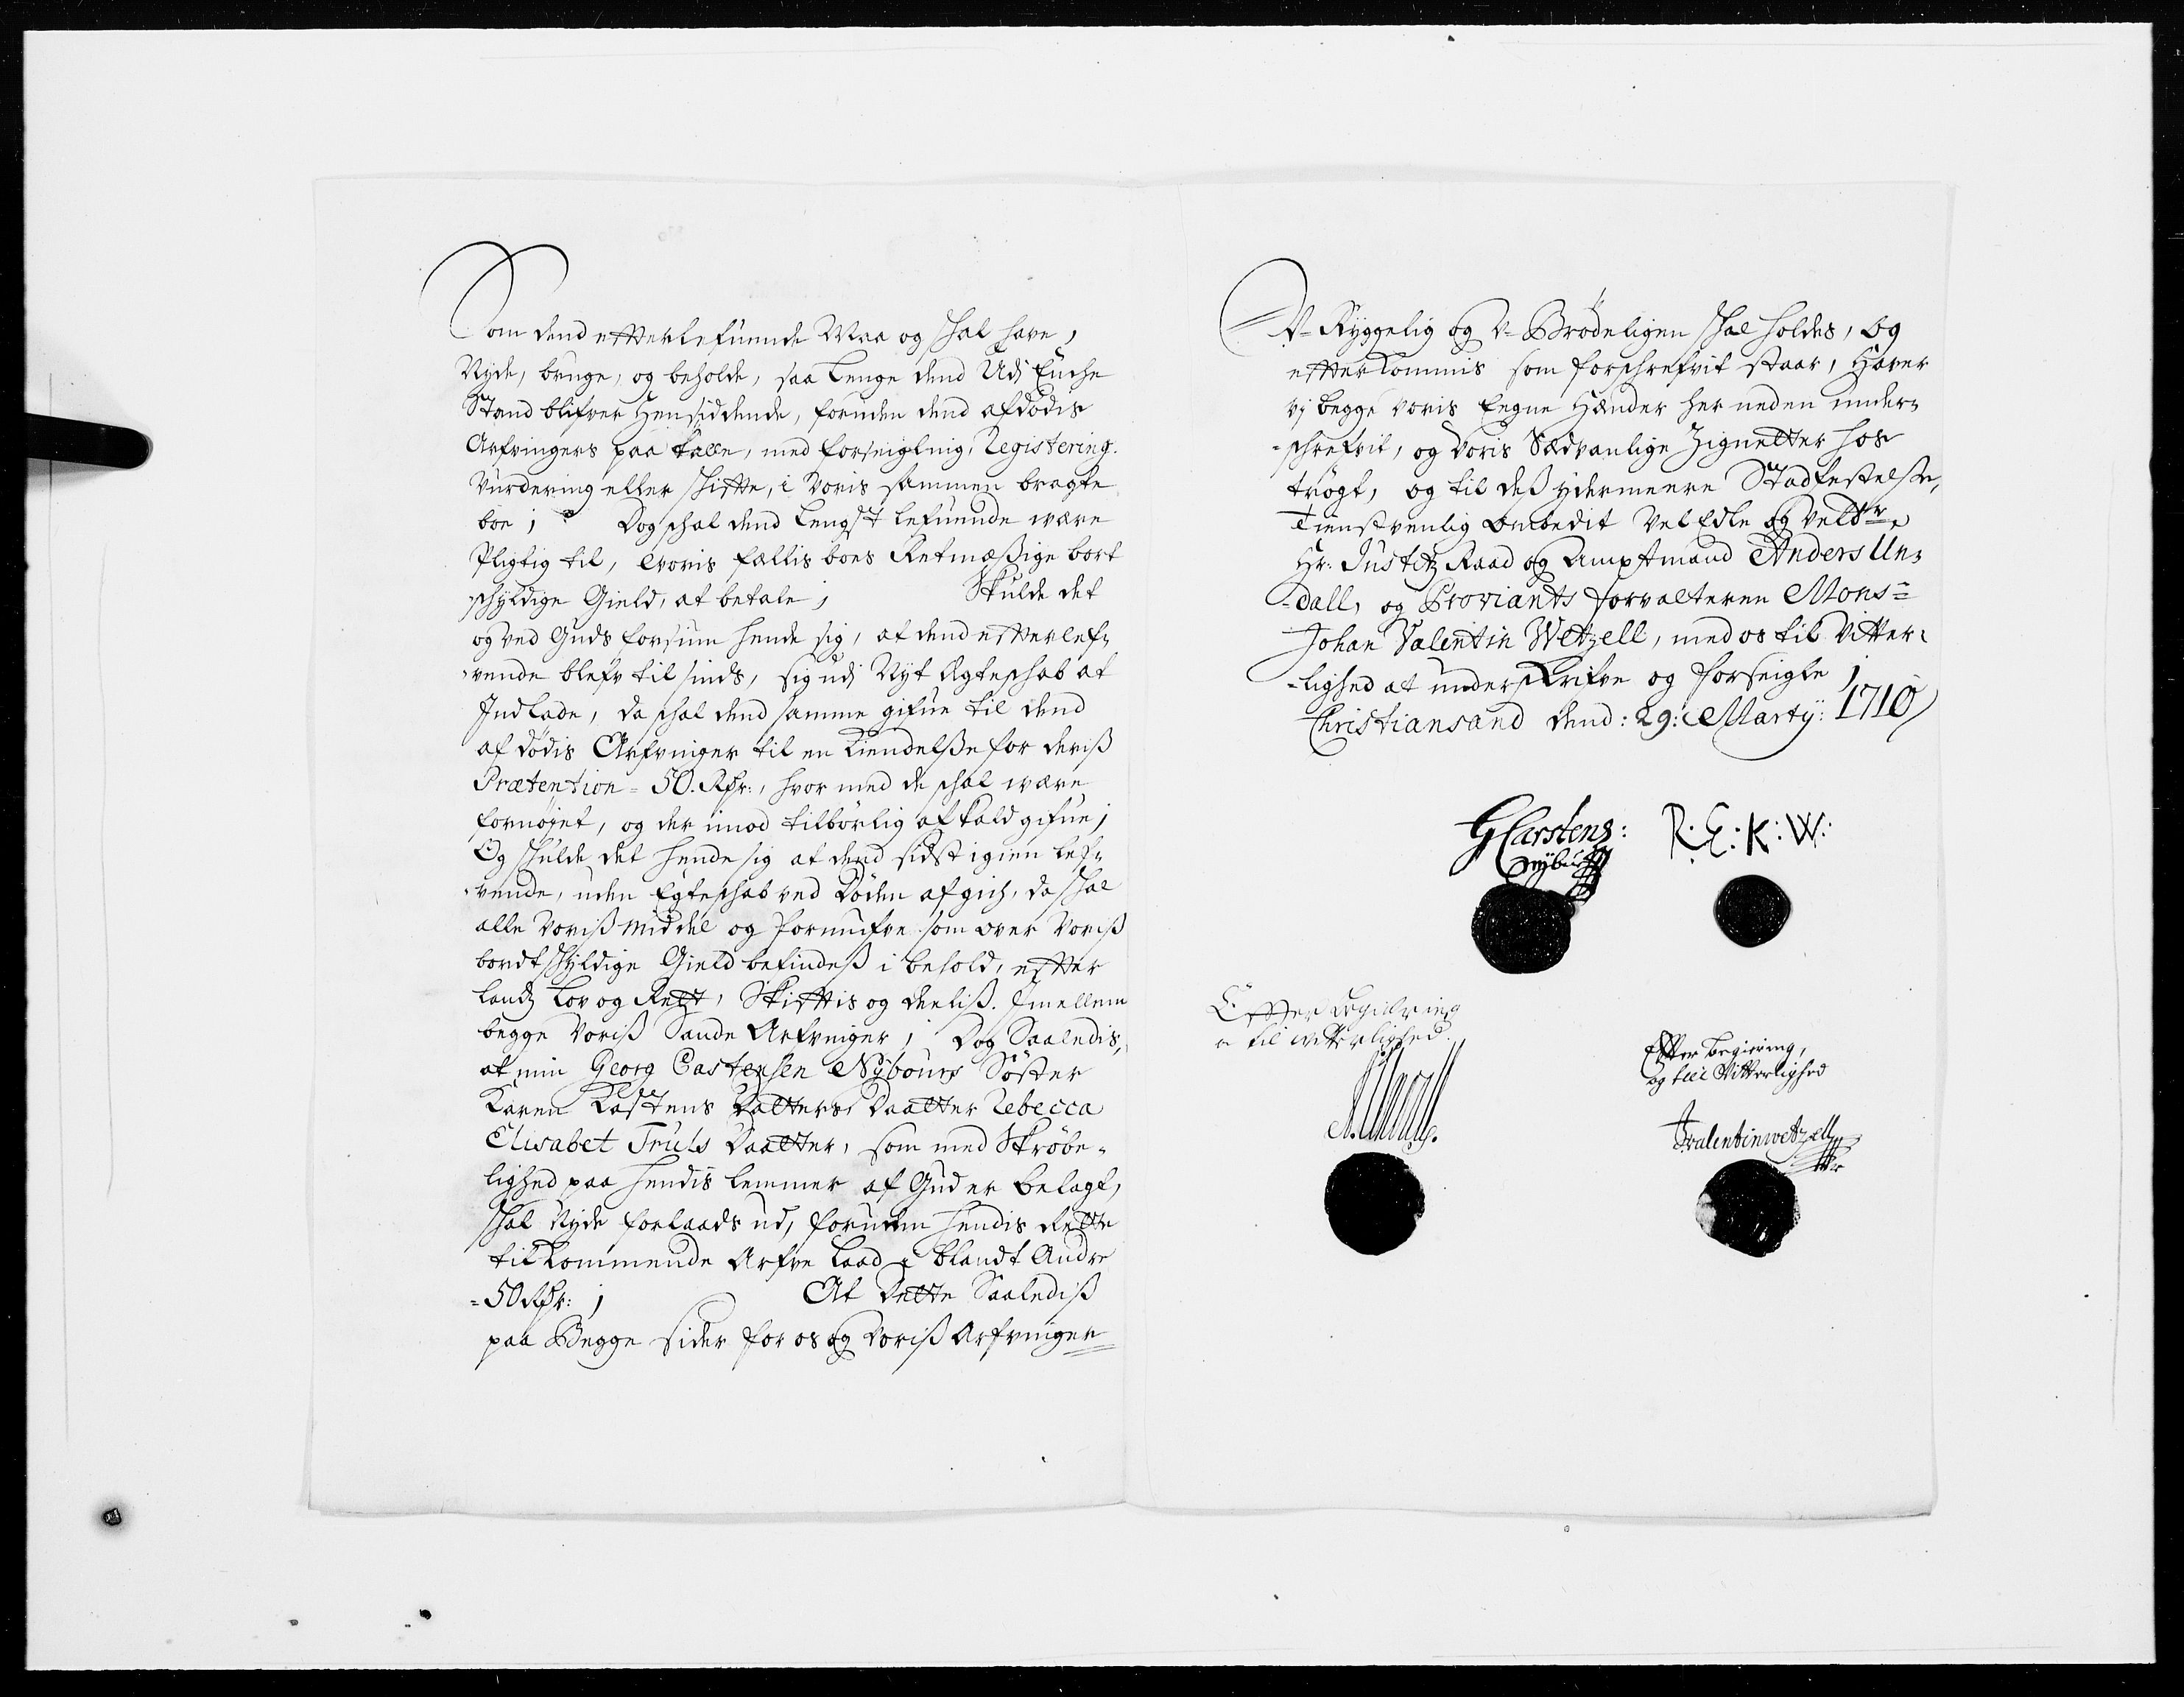 Som dend effterlefuende Maa og schal have,
Nyde, bruge, og beholde, saa Lenge dend Udj Enche
Stand blifver Hensiddende, foruden dend afdødis
Arfvingers paa talle, med forseigling, Registering.
Vurdering eller schiffte, i Voris sammen bragte
boe; Dog schal dend Lengst lefuende være
Pligtig til, Woris fællis boes Retmæßige bort
schyldige Gield, at betale; Skulde det
og ved Guds forsiun hende sig, at dend effterlef-
vende blefv til sinds, sig udj Nyt Ægteschab at
Indlade, da schal dend samme gifue til dend
afdødis Arfvinger til en Kiendelße for deriß
Prætention = 50. Rdr:, hvor med de schal være
fornøjet, og der imod tilbørlig afkald gifue;
Og schulde det hende sig at dend sidst igien lef-
vende, uden Egteschab ved Døden afgich, da schal
alle Voriß middel og formufve som over Voriß
bordtschyldige Gield befindeß i behold, effter
Landz Lov og Rett, Skifftis og deeliß. Imellem
begge Voriß Sande Arfvinger; Dog Saaledis,
at min Georg Castensen Nÿbourg Søster
Karen Kastens Datters Daatter Rebecca
Elisabet Truls Daatter, som med Skrøbe-
lighed paa hendis lemmer af Gud er belagt,
schal Nyde forlaads ud, foruden hendis Rette
tilkommende Arfve Laad i blandt Andre
=50 Rdr: ; At Dette Saalediß
paa Begge sider for os og Voriß Arfvinger
V-Ryggelig og V-Brødeligen schal holdes, og
effterkommis som forschrefvit staar, Haver
vj begge voris Eegne Hænder her neden under-
-schrefvit, og Voris Sædvanlige Zignetter hos
trøgt, og til deß ydermeere Stadfestelße,
Tienstvenlig ombedit Vel Edle og Veldr.
Hr: Justitz Raad og Amptmand Anders Un-
-dall, og Proviants forvalteren Mons=
Johan Valentin Wetzell, med os til Vitter-
-lighed at underskrifve og forseigle;
Christiansand dend: 29: Martÿ: 1710
GCarstens: R: E: K: W:
Nÿburg
Effter begiering
til vitterlighed.
Effter begiering,
og till Vitterlighed
A. Undall.
JValentinwetzell